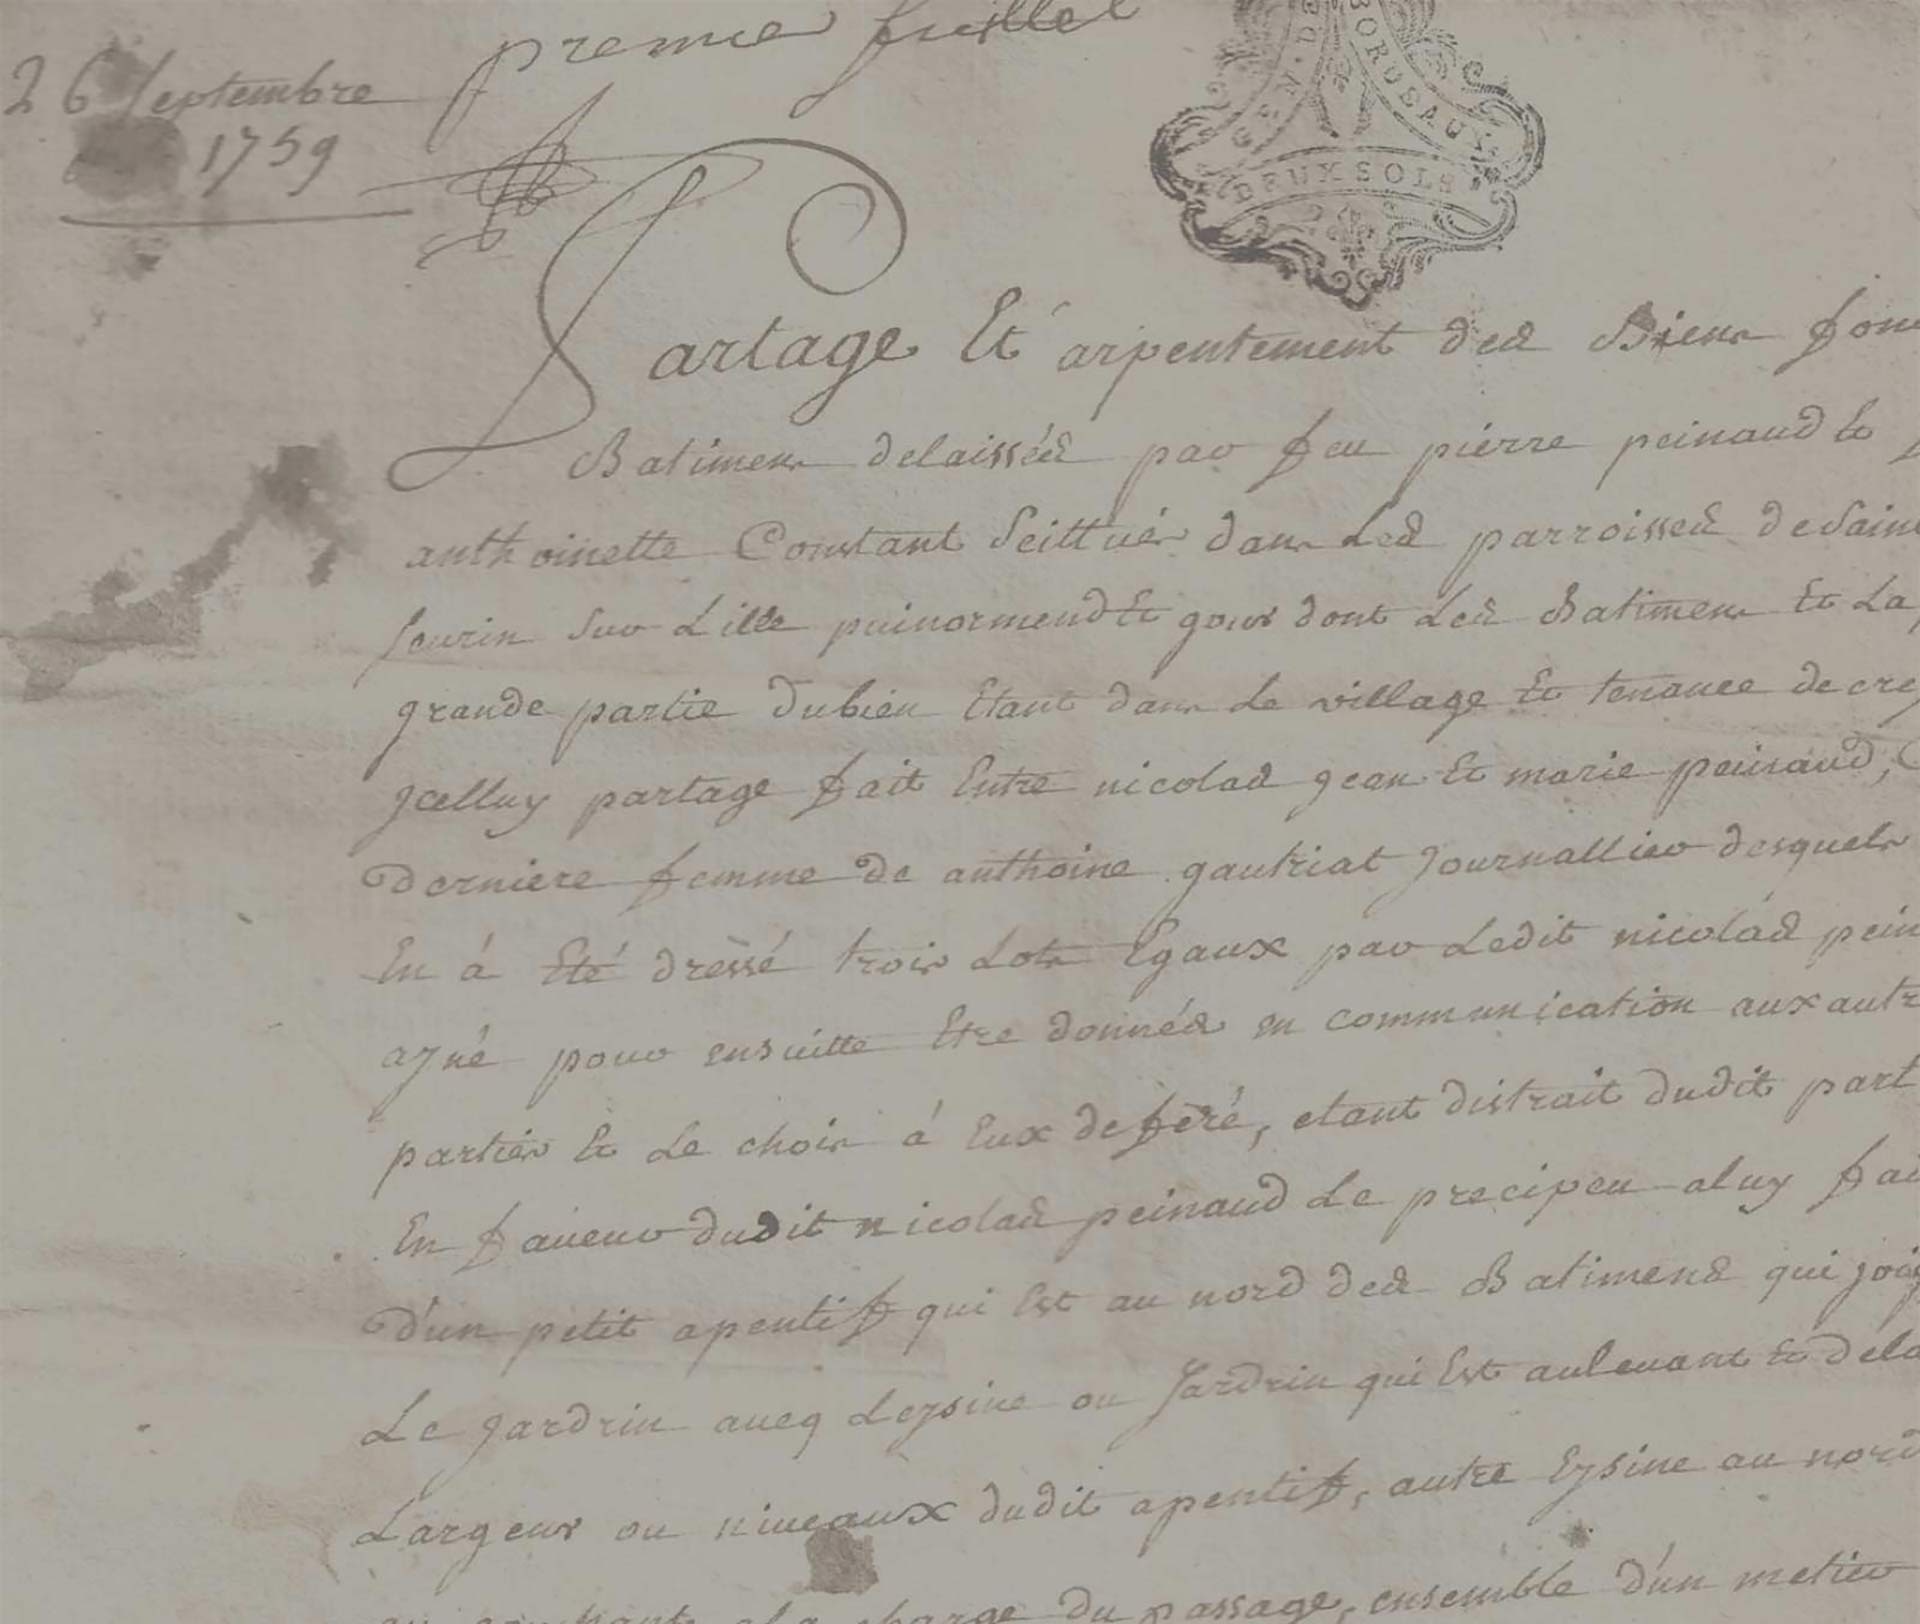 premier feuillet
26 Septembre
1759
GEN. DE BORDEAUX
DEUX SOLS
Partage Et arpentement des Biens fon
Batimens delaissés par feu pierre peinaud Et
anthoinette Constant Scittués dans Les parroisses de Sain
seurin sur Lille puinormend Et gours dont Les Batimens Et La
grande partie du bien Etant dans Le village Et tenance de cre
jcelluy partage fait Entre nicolas jean Et marie peinaud,
derniere femme de anthoine gautriat journallier desquels
En á Eté dressé trois Lots Egaux par Ledit nicolás pein
ayné pour ensuitte Etre donnés en communication aux autr
parties Et Le choix á Eux deferé, etant distrait dudit part
En faveur dudit nicolas peinaud Le precipeu a luy fai
D'un petit apentif qui Est au nord des Batimens qui joig
Le jardrin aueq Leysine ou Jardrin qui Est au leuant Et dela
Largeur ou niueaux dudit apentif, autre Eysine au nord
a la charge du passage, ensemble d'un metier